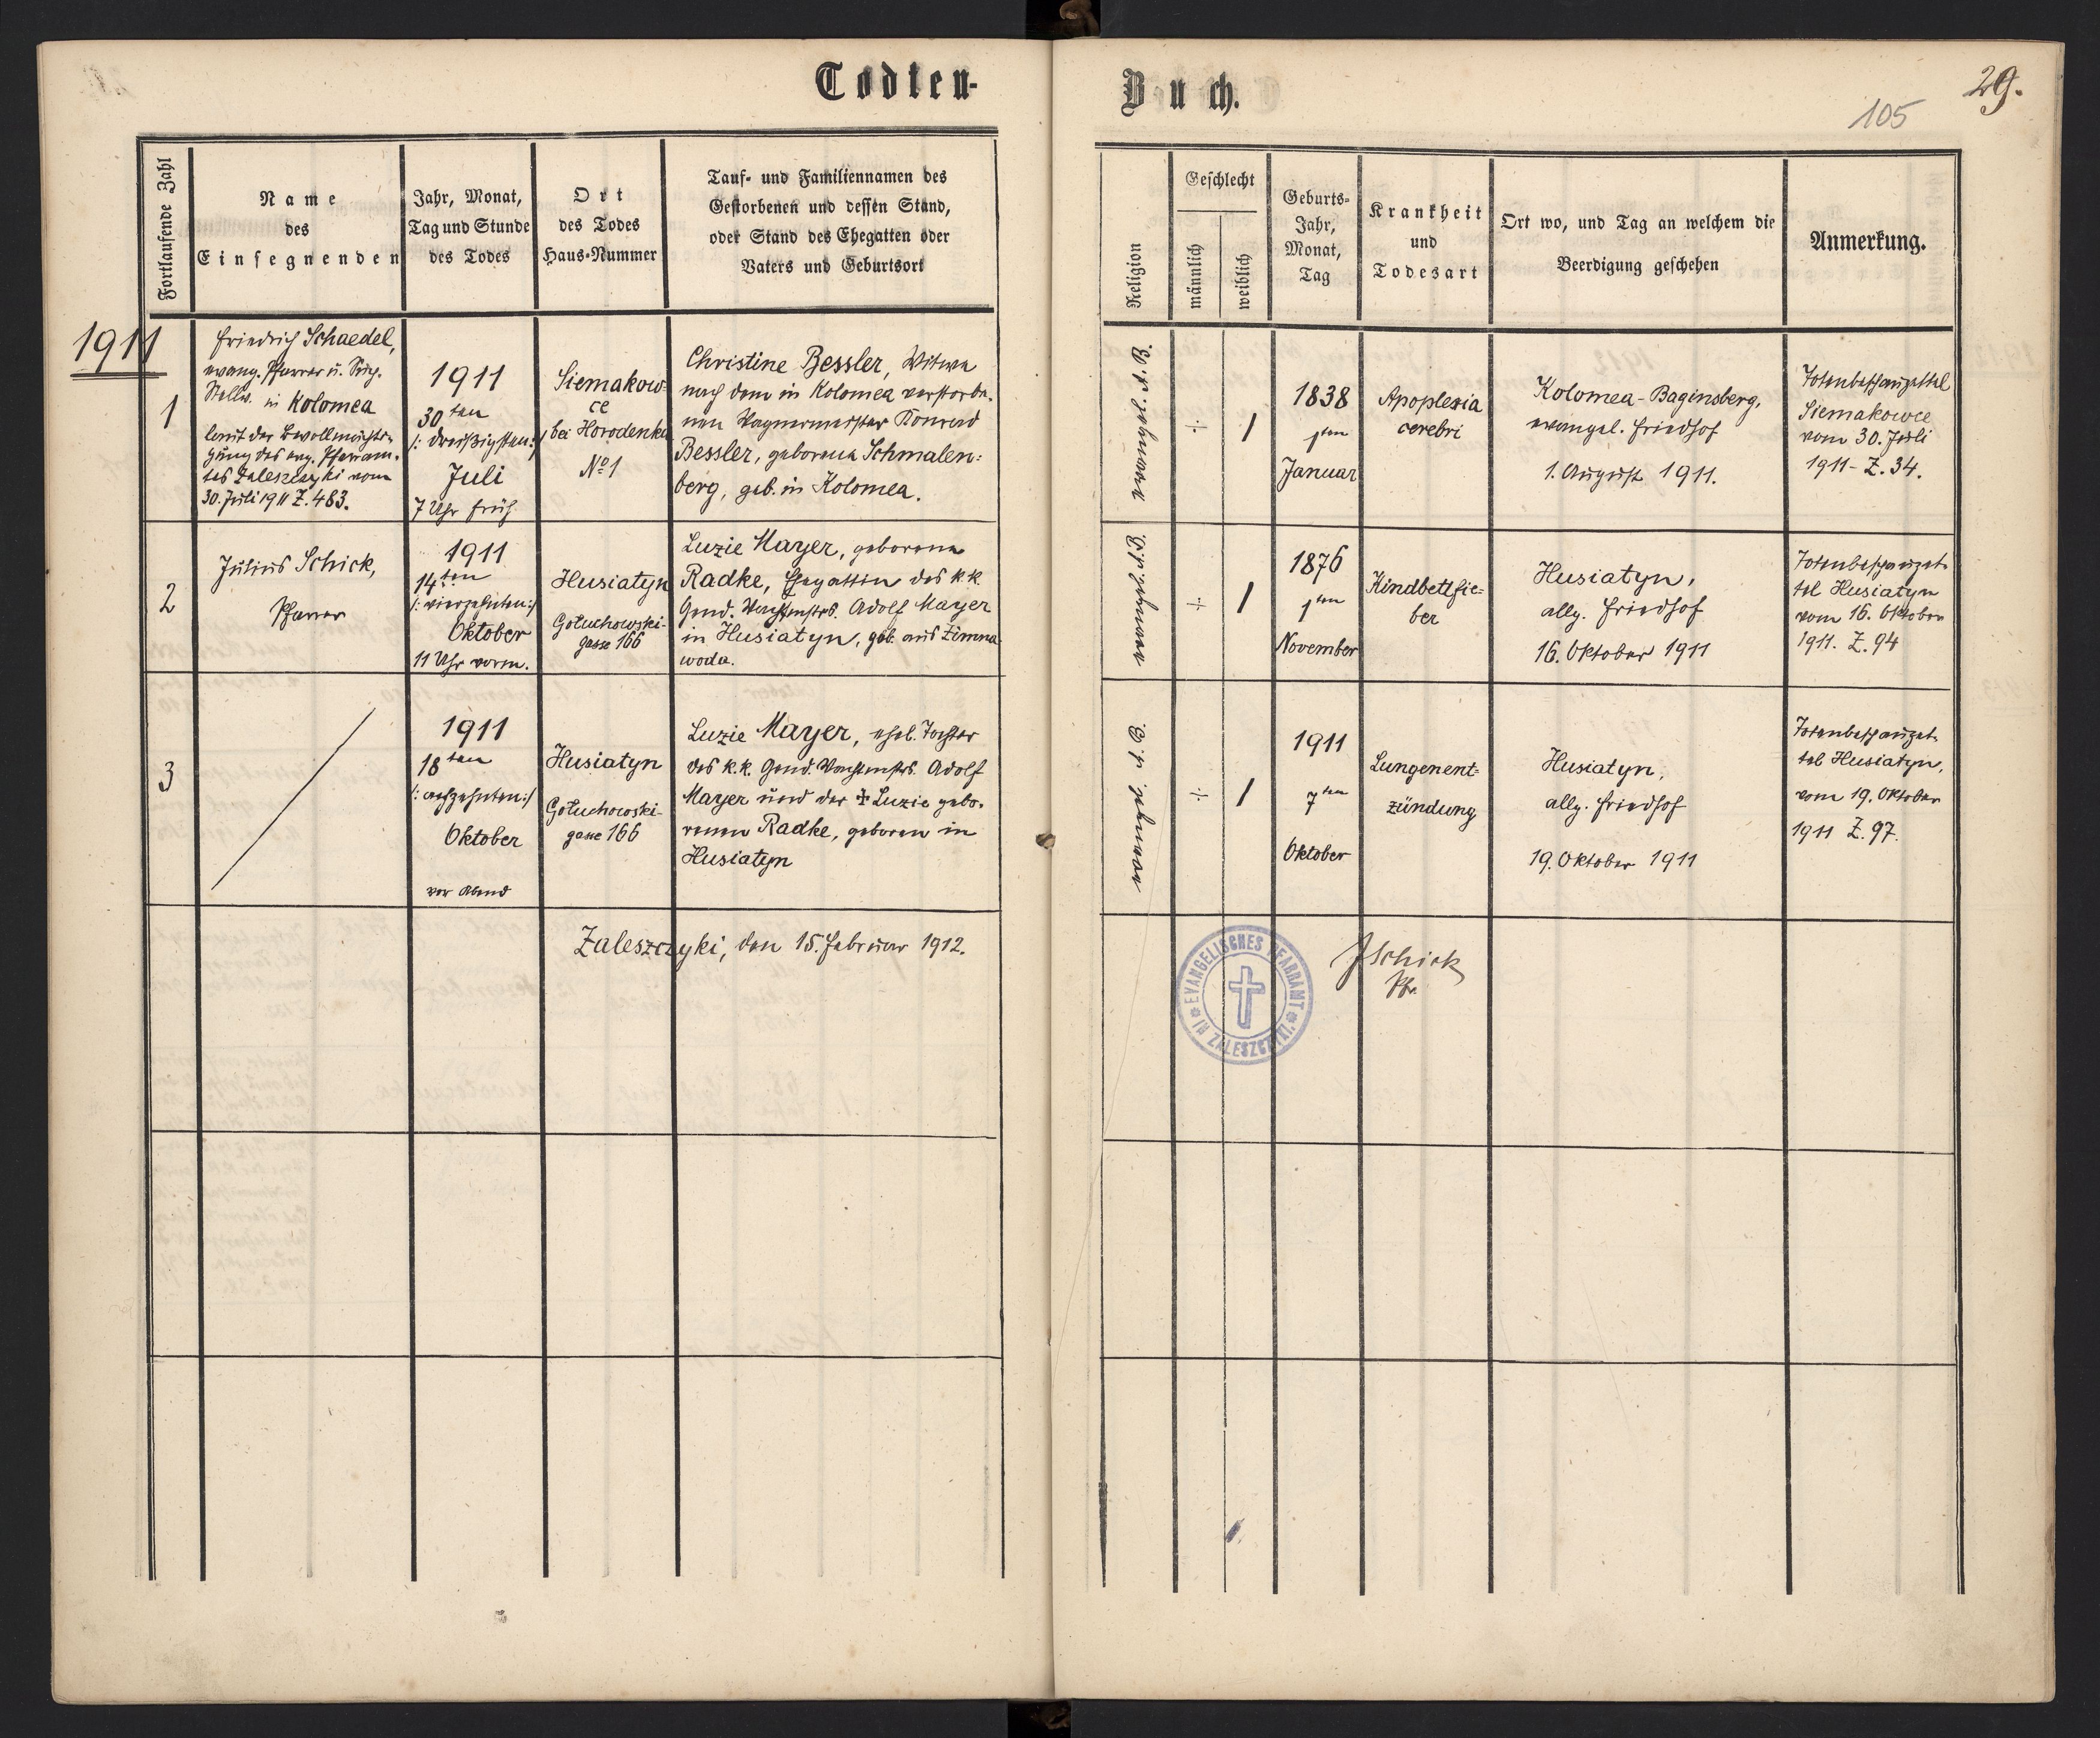 Todten-
Buch.
29.
105
Fortlaufende Zahl
Name
des
Einsegnenden
Jahr, Monat,
Tag und Stunde
des Todes
Ort
des Todes
Haus-Nummer
Tauf- und Familiennamen des
Gestorbenen und dessen Stand,
oder Stand des Ehegatten oder
Vaters und Geburtsort
Religion
Geschlecht
männlich
weiblich
Geburts-
Jahr,
Monat,
Tag
Krankheit
und
Todesart
Ort wo, und Tag an welchem die
Beerdigung geschehen
Anmerkung.
1911
1
Friedrich Schaedel,
evang. Pfarrer u.
Stellv. in Kolomea
laut der Bevollmächti-
gung des evg. Pfarram-
tes Zaleszczyki vom
30. Juli 1911 Z. 483.
1911
30ten
/: dreißigsten :/
Juli
7 Uhr früh
Siemakow-
ce
bei Horodenka
No 1
Christine Bessler, Witwe
nach dem in Kolomea verstorbe-
nen Wagnermeister Konrad
Bessler, geborene Schmalen-
berg, geb. in Kolomea.
÷
1
1838
1ten
Januar
Apoplexia
cerebri
Kolomea-Baginsberg,
evangel. Friedhof
1. August 1911.
Totenbeschauzettel
Siemakowce
vom 30. Juli
1911 - Z. 34.
2
Julius Schick,
Pfarrer
1911
14ten
/: vierzehnten :/
Oktober
11 Uhr vorm.
Husiatyn
Gołuchowski-
gasse 166
Luzie Mayer, geborene
Radke, Ehegattin des k.k.
Gend. Wachtmstrs. Adolf Mayer
in Husiatyn, geb. aus Zimna
woda.
÷
1
1876
1ten
November
Kindbettfie-
ber
Husiatyn,
allg. Friedhof
16. Oktober 1911
Totenbeschauzet-
tel Husiatyn
vom 16. Oktober
1911. Z. 94
3
1911
18ten
/: achzehnten :/
Oktober
vor Abend
Husiatyn
Gołuchowski-
gasse 166
Luzie Mayer, ehel. Tochter
des k.k. Gend. Wachtmstrs. Adolf
Mayer und der ‡ Luzie gebo-
renen Radke, geboren in
Husiatyn
÷
1
1911
7ten
Oktober
Lungenent-
zündung
Husiatyn,
allg. Friedhof
19. Oktober 1911
Totenbeschauzet-
tel Husiatyn,
vom 19. Oktober
1911 Z. 97.
Zaleszczyki, den 15. Februar 1912.
EVANGELISCHES PFARRAMT
IN ZALESZCZYKI
JSchick
Pfr.